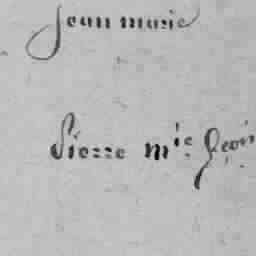 Jean marie
Pierre mie